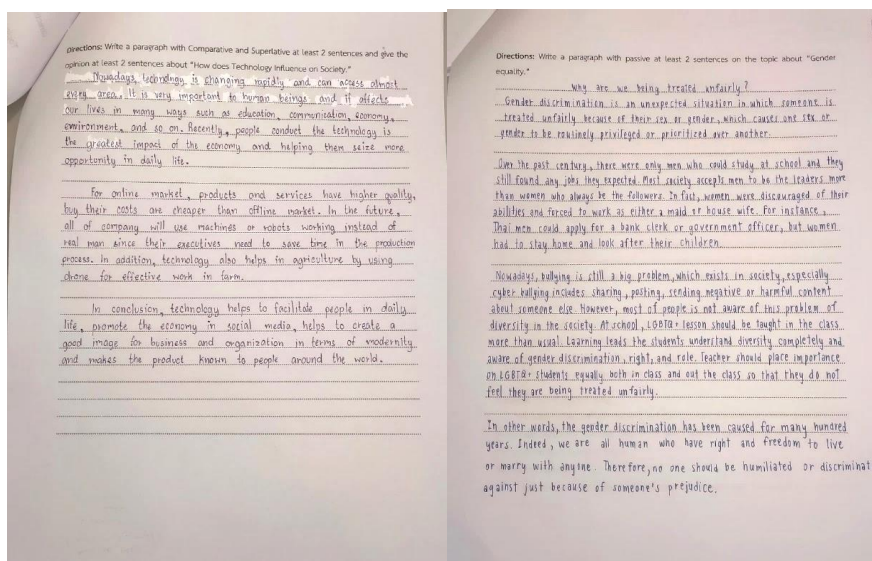 Directions: Write a paragraph with Comparative and Superlative at least 2 sentences and give the
opinion at least 2 sentences about "How does Technology Influence on Society."
Nowadays, technology is changing rapidly and can access almost
every area. It is very important to human beings and it affects
our lives in many ways such as education, communication, economy,
environment, and so on. Recently, people conduct the technology is
the greatest impact of the economy and helping them seize more
opportunity in daily life.
For online market, products and services have higher quality,
buy their costs are cheaper than offline market. In the future,
all of company will use machines or robots working instead of
real man since their executives need to save time in the production
process. In addition, technology also helps in agriculture by using
drone for effective work in farm.
In conclusion, technology helps to facilitate people in daily
life, promote the economy in social media, helps to create a
good image for business and organization in terms of modernity
and makes the product known to people around the world.
Directions: Write a paragraph with passive at least 2 sentences on the topic about "Gender
equality."
Why are we being treated unfairly?
Gender discrimination is an unexpected situation in which someone is
treated unfairly because of their sex or gender, which causes one sex or
gender to be routinely privileged or prioritized over another.
Over the past century, there were only men who could study at school and they
still found any jobs they expected. Most society accepts men to be the leaders more
than women who always be the followers. In fast, women were discouraged of their
abilities and forced to work as either a maid or house wife. For instance,
Thai men could apply for a bank clerk or government officer, but women
had to stay home and look after their children.
Nowadays, bullying is still a big problem, which exists in society, especially
cyber bullying includes sharing, posting, sending negative or harmful content
about someone else. However, most of people is not aware of this problem of
diversity in the society. At school, LGBTQ+ lesson should be taught in the class
more than usual. Learning leads the students understand diversity completely and
aware of gender discrimination, right, and role. Teacher should place importance
on LGBTQ+ students equally both in class and out the class so that they do not
feel they are being treated unfairly.
In other words, the gender discrimination has been caused for many hundred
years. Indeed, we are all human who have right and freedom to live
or marry with anyone. Therefore, no one should be humiliated or discriminat
against just because of someone's prejudice.